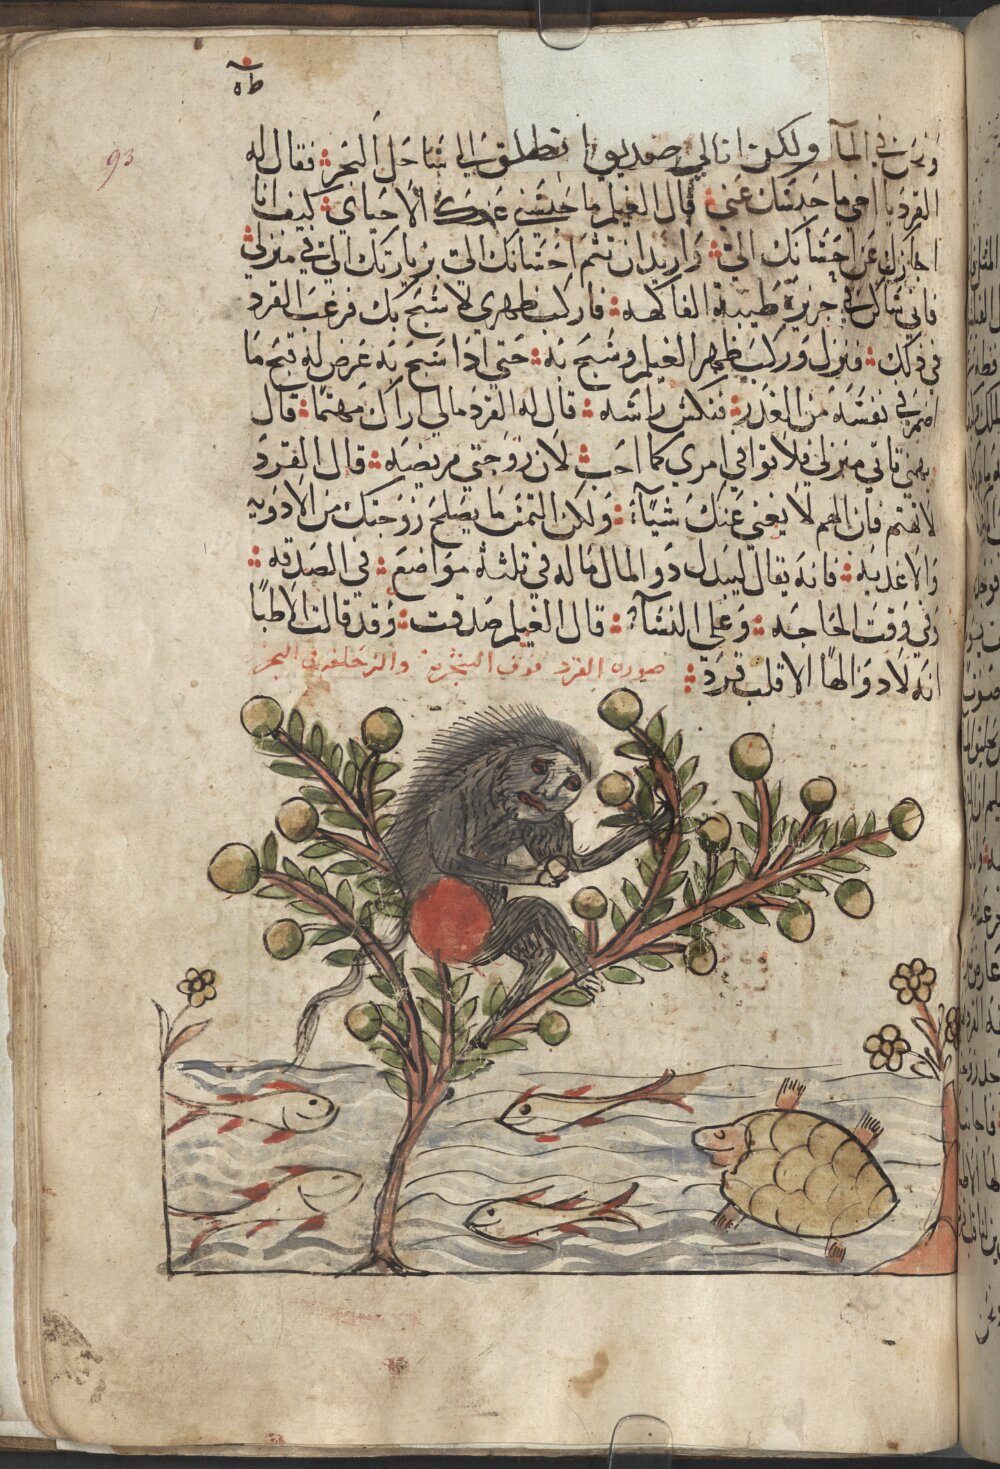 ط ه
93
ونحن في الماء ولكن انا لي صديق انطلق الى ساحل البحر فقال له
القرد يا اخي ما حدثتك عني قال الغيلم ما حبسني عنك الا حياي كيف انا
اجازيك عن احسانك الي واريد ان تتم احسانك الي بزيارتك الي في منزلي
فاني ساكن في جزيرة طيبة الفاكهه فاركب ظهري لاسبح بك فرغب القرد
في ذلك فنزل وركب ظهر الغيلم وسبح به حتى اذا سبح به عرض له قبح ما
اضمر في نفسه من الغدر فنكس راسه قال له القرد مالي اراك مهتما قال
يهمني تاتي منزلي فلا توافي امري كما احب لان زوجتي مريضه قال القرد
لا تهتم فان الهم لا يغني عنك شياء ولكن التمس ما يصلح زوجتك من الادويه
والاغذيه فانه يقال ليبذل ذو المال ماله في ثلثة مواضع في الصدقه
وفي وقت الحاجه وعلى النساء قال الغيلم صدقت وقد قالت الاطبا
انه لا دوا لها الا قلب قرد
صورة القرد فوق الشجرة والزحلفه في البحر